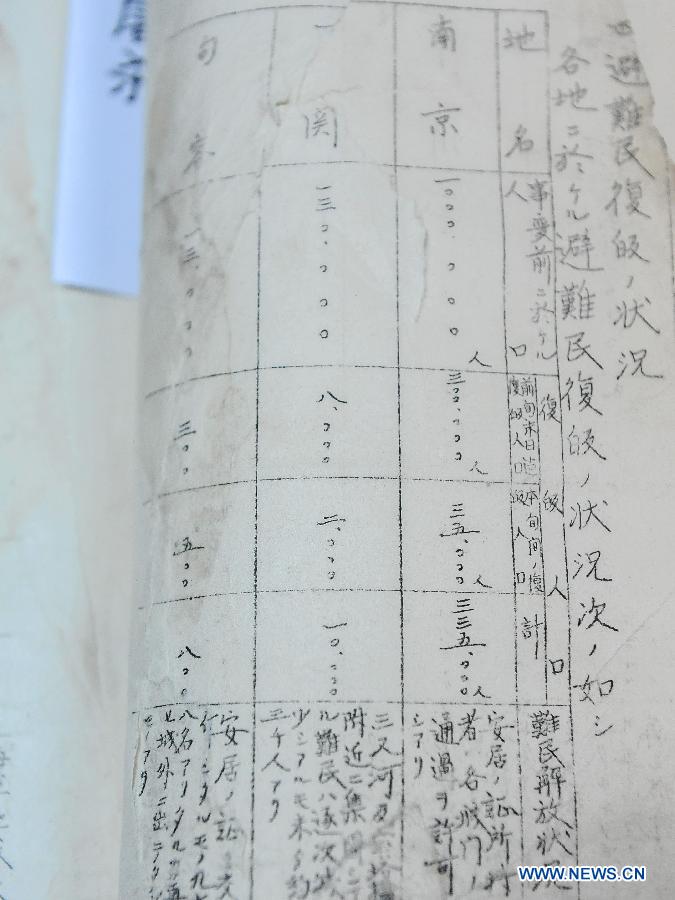 四避難民復皈ノ状況
各地ニ於ケル避難民復皈ノ状況次ノ如シ
地名
事変前ニ於ケル
人口
復皈人口
前旬末日迄
復皈人口
本旬間ノ復
皈人口
計
難民解放状況
南京
一〇〇〇.〇〇〇人
三〇〇.〇〇〇人
三五.〇〇〇人
三三五.〇〇〇人
安居ノ証所持
者ノ各城門ノ
通過ヲ許可
シアリ
一関
一三〇.〇〇〇
八.〇〇〇
二.〇〇〇
一〇.〇〇〇
三叉河及
附近ニ集
ル難民ハ逐次
少シアルモ未タ約
三千人アリ
句容
一三.〇〇〇
三〇〇
五〇〇
八〇〇
安居ノ証ヲ交
八名アリ
城外ニ出
WWW.NEWS.CN